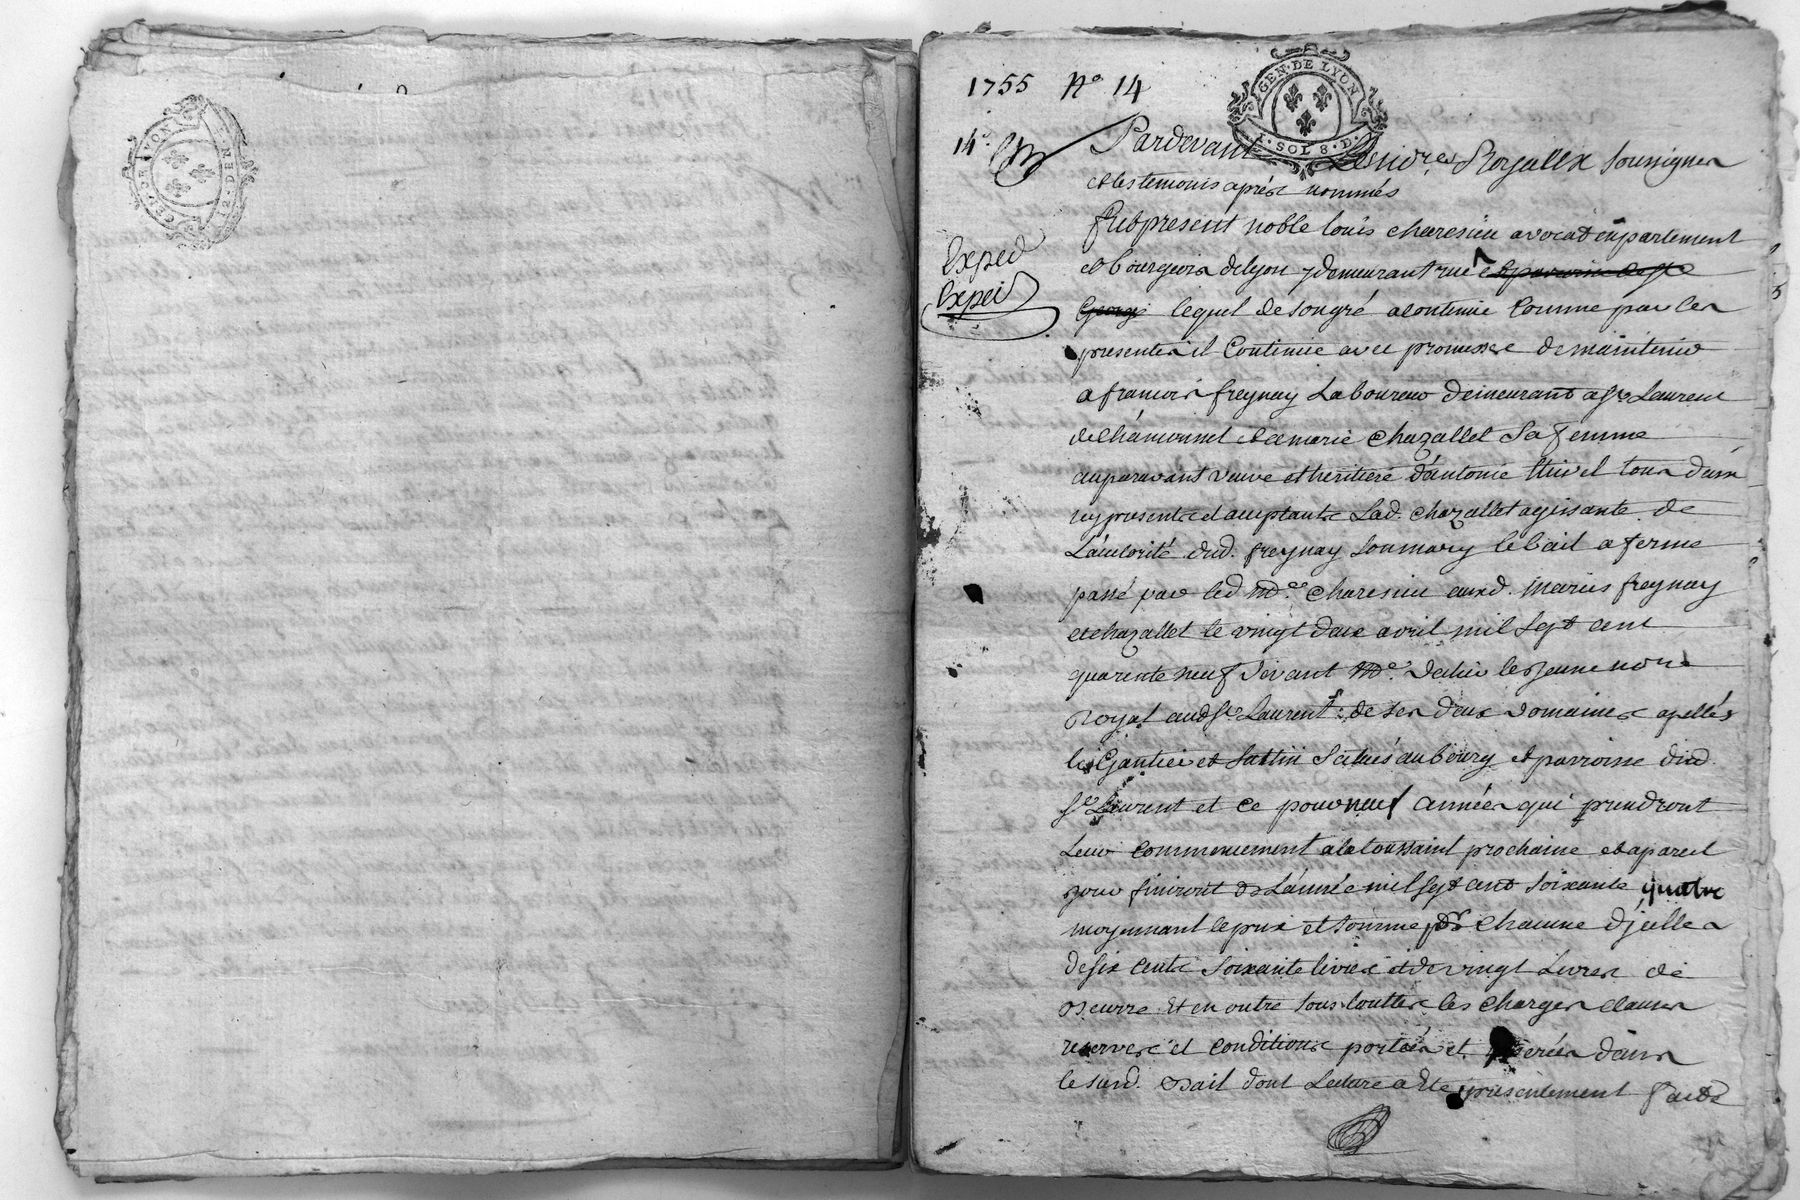 1755 No 14
GEN. DE LYON
1. SOL 8. D.
14e
Pardevant Les nores Royallx soussignes
et les temoins aprés nommés
fut present noble louis charesieu avocat en parlement
et bourgeois de lyon y demeurant rue et parroisse de st
George lequel de son gré a continué comme par les
presentes il continue avec promesse de maintenir
a francois freynay Laboureur demeurant a st Laurent
de chamousset et a marie chazallet sa femme
auparavant veuve et heritiere d'antoine thivel tous deux
icy presents et acceptants Lad. chazallet agissante de
L'autorité dud. freynay son mary le bail a ferme
passé par led me charesieu auxd. mariés freynay
et chazallet le vingt deux avril mil sept cent
quarente neuf devant me le jeune nore
Royal aud st Laurent de ses deux domaines apellés
le Gantier et situés au bourg et parroisse dud.
st Laurent et ce pour neuf années qui prendront
Leur commencement a la toussaint prochaine et a pareil
jour finiront de L'année mil sept cent soixante quatre
moyennant le prix et somme pr chacune d'jcelles
de six cents soixante livres et de vingt Livres de
beurre Et en outre sous touttes les charges clauses
reserves et conditions portées et inserées dans
le susd. bail dont Lecture a Eté presentement faitte
Exped
Exped
GEN. DE LYON